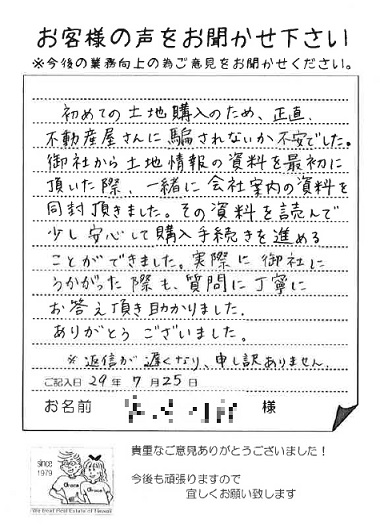 お客様の声をお聞かせ下さい
※今後の業務向上の為ご意見をお聞かせください。
初めての土地購入のため、正直、
不動産屋さんに騙されないか不安でした。
御社から土地情報の資料を最初に
頂いた際、一緒に会社案内の資料を
同封頂きました。その資料を読んで
少し安心して購入手続きを進める
ことができました。実際に御社に
うかがった際も、質問に丁寧に
お答え頂き助かりました。
ありがとうございました。
※返信が遅くなり、申し訳ありません。
ご記入日 29年 7月 25日
お名前 様
since
1979
貴重なご意見ありがとうございました！
今後も頑張りますので
宜しくお願い致します